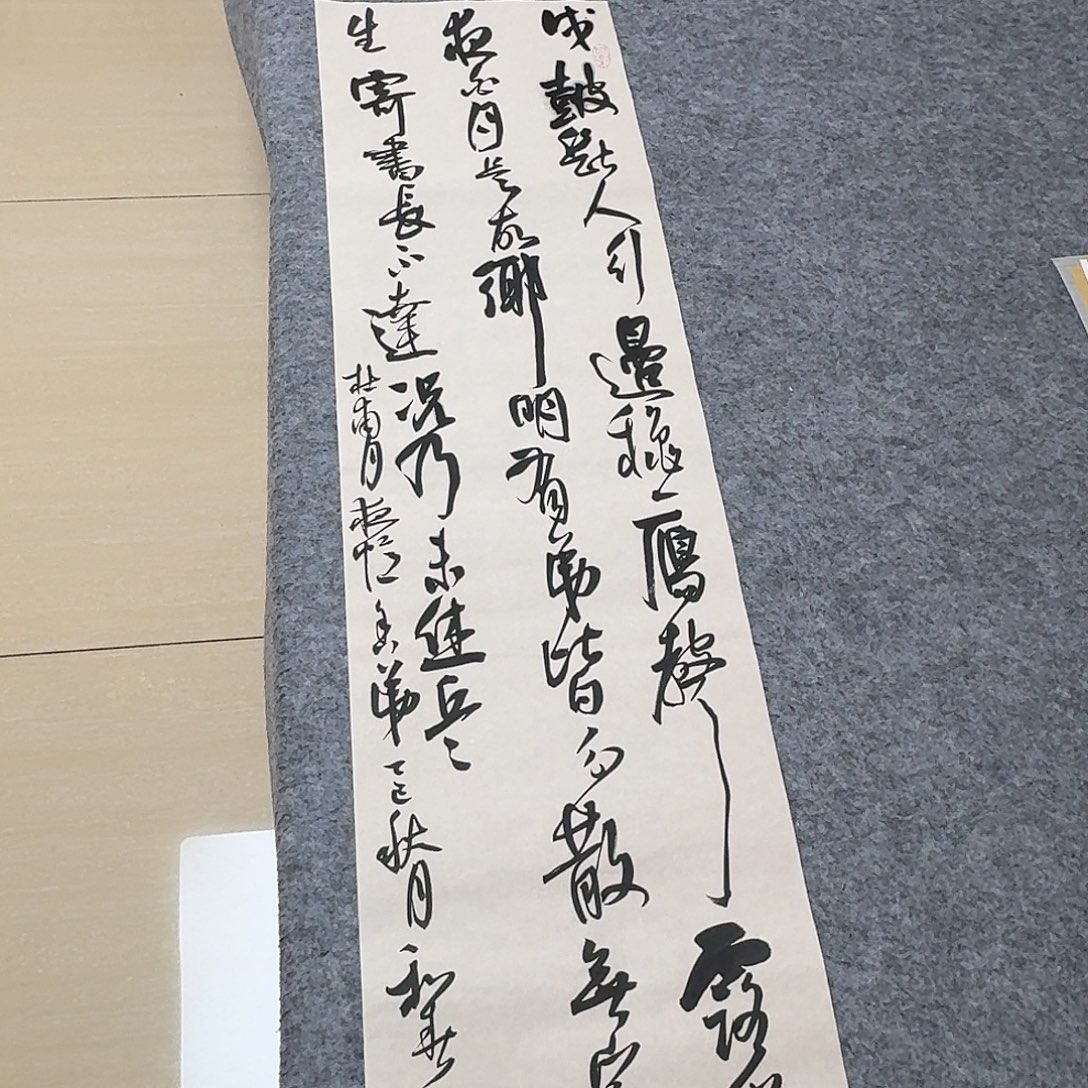 戍鼓斷人行邊秋一雁聲露從
夜白月是故鄉明有弟皆分散無家
生寄書長不達況乃未休兵
杜甫月夜憶舍弟乙巳秋月